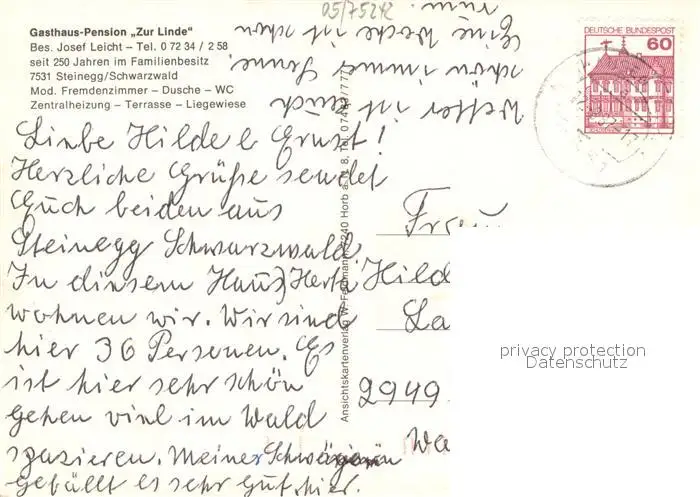 05/75212
Gasthaus-Pension „Zur Linde“
Bes. Josef Leicht – Tel. 0 72 34 / 2 58
seit 250 Jahren im Familienbesitz
7531 Steinegg/Schwarzwald
Mod. Fremdenzimmer – Dusche – WC
Zentralheizung – Terrasse – Liegewiese
DEUTSCHE BUNDESPOST
60
Liebe Hilde & Ernst!
Herzliche Grüße sendet
Euch beiden aus
Steinegg Schwarzwald.
In diesem Haus, Herta
wohnen wir. Wir sind
hier 36 Personen. Es
ist hier sehr schön
gehen viel im Wald
spazieren. Meiner Schwägerin
gefällt es sehr gut hier.
Wetter ist auch
schön immer Sonne.
Eine Woche ist schon
rum.
Ansichtskartenverlag W. Feldmann, 7240 Horb a. N. 8, Tel. 07483/777
Frau
Hild
La
2949
Wa
privacy protection
Datenschutz